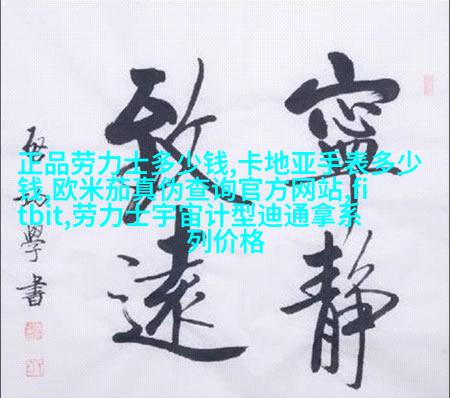 正品劳力士多少钱,卡地亚手表多少
钱,欧米茄真伪查询官方网站,fi
tbit,劳力士宇宙计型迪通拿系
列价格
寧靜
致遠
學書